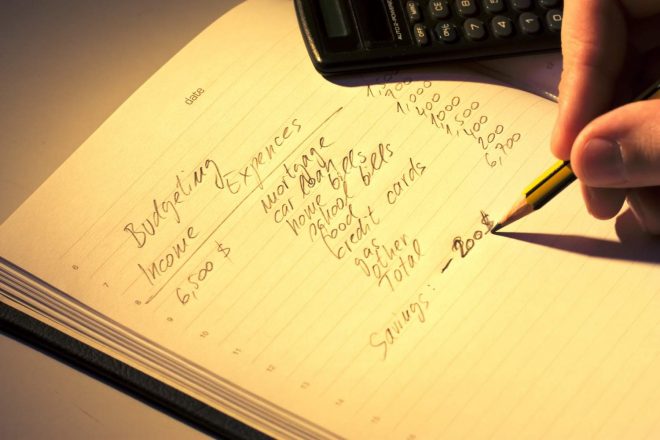 date
Budgeting
Income Expences
6,500 $
mortgage
car loan
home bills
school bills
food
credit cards
gas
other
Total
1,000
400
1,000
500
1,400
200
6,700
Savings: - 200 $
6
7
8
9
10
11
12
13
14
15